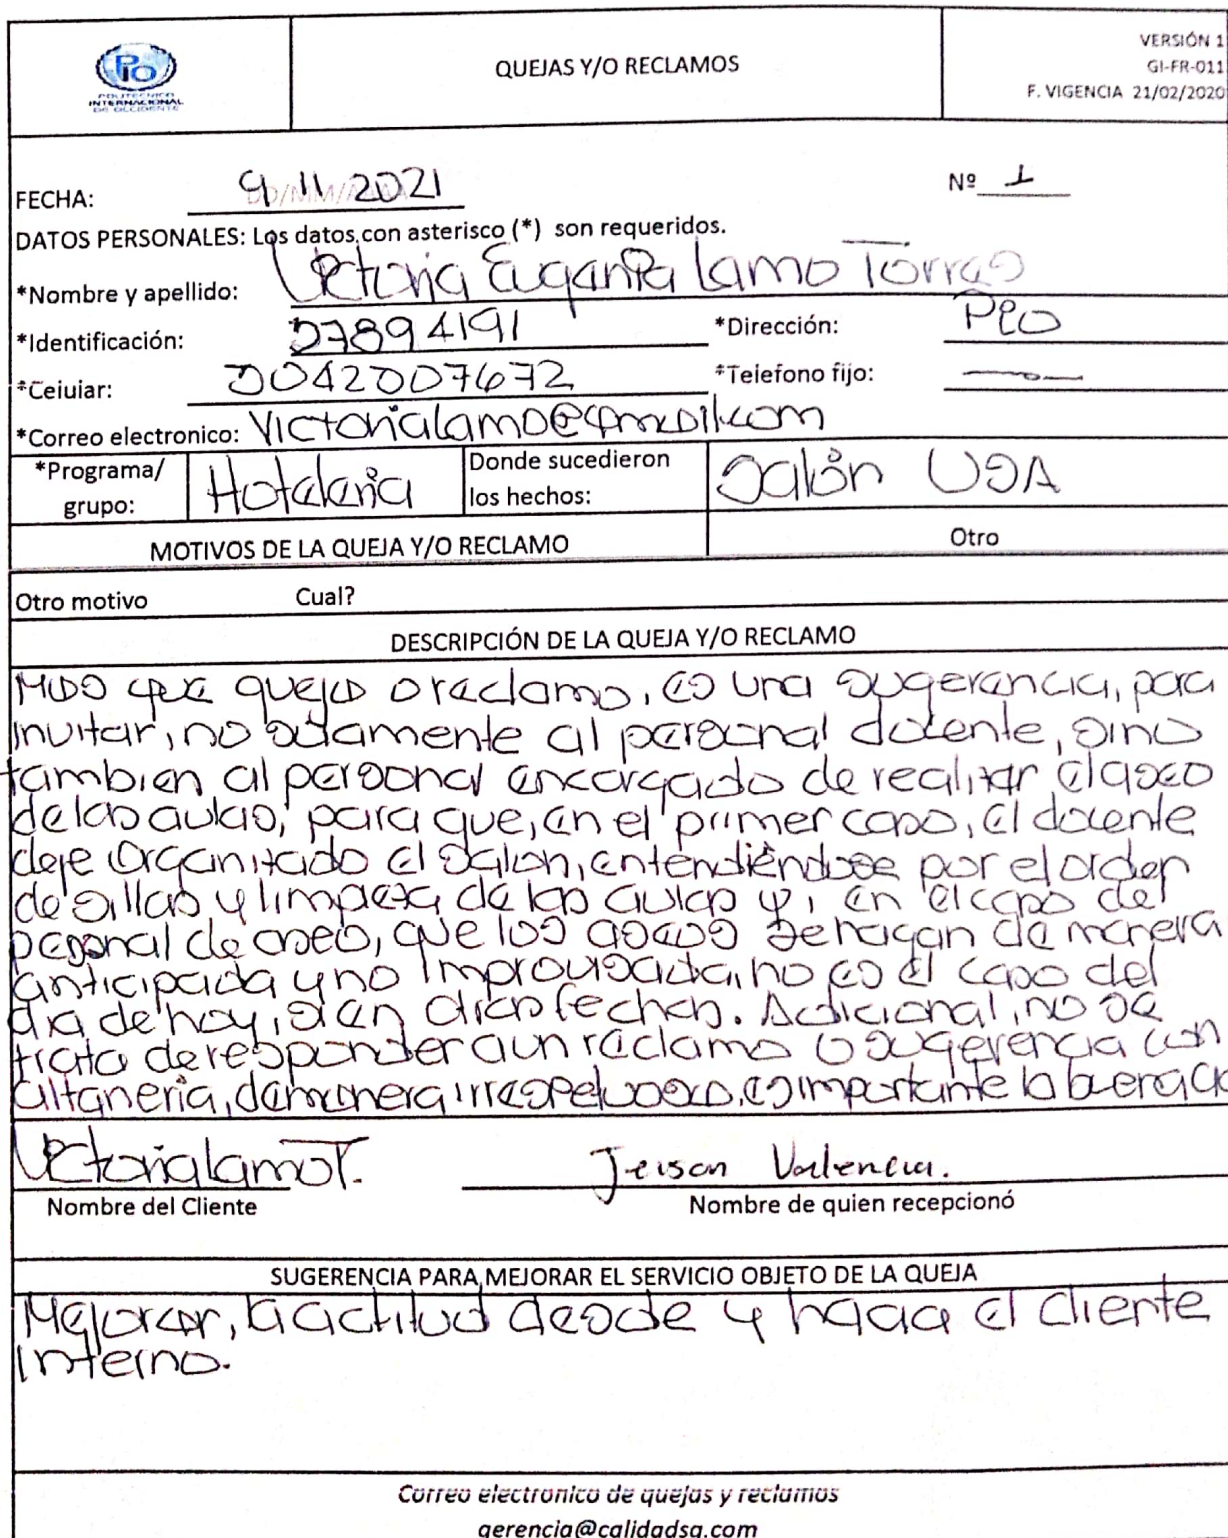 PIO
POLITECNICO
INTERNACIONAL
DE OCCIDENTE
QUEJAS Y/O RECLAMOS
VERSIÓN 1
GI-FR-011
F. VIGENCIA 21/02/2020
FECHA: 9/11/2021
Nº 1
DATOS PERSONALES: Los datos con asterisco (*) son requeridos.
*Nombre y apellido: Victoria Eugenia Lamo Torres
*Identificación: 37894191 *Dirección: PIO
*Celular: 30420007672 *Telefono fijo: —
*Correo electronico: Victorialamo@gmail.com
*Programa/ grupo: Hoteleria Donde sucedieron los hechos: Salón USA
MOTIVOS DE LA QUEJA Y/O RECLAMO Otro
Otro motivo Cual?
DESCRIPCIÓN DE LA QUEJA Y/O RECLAMO
Más que queja o reclamo, es una sugerencia, para
invitar, no solamente al personal docente, sino
tambien al personal encargado de realizar el aseo
de las aulas, para que, en el primer caso, el docente
deje organizado el salon, entendiéndose por el orden
de sillas y limpieza de las aulas y, en el caso del
personal de aseo, que los aseos se hagan de manera
anticipada y no improvisada, no es el caso del
dia de hoy, si en otras fechas. Adicional, no se
trata de responder a un reclamo o sugerencia con
altaneria, de manera irrespetuosa, es importante la buena
Victoria Lamo T. Jeison Valencia.
Nombre del Cliente Nombre de quien recepcionó
SUGERENCIA PARA MEJORAR EL SERVICIO OBJETO DE LA QUEJA
Mejorar, la actitud desde y hacia el cliente
interno.
Correo electronico de quejas y reclamos
gerencia@calidadsg.com